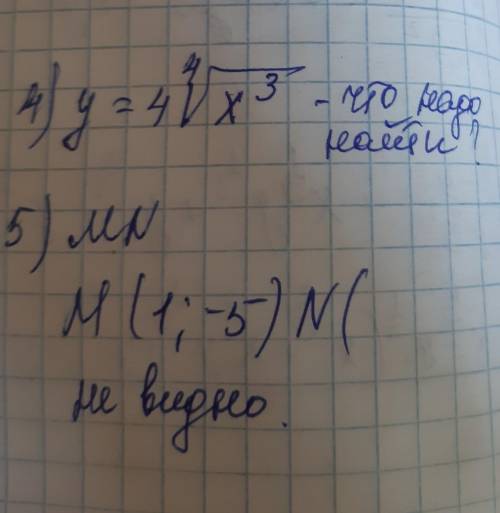 4) y = 4 ∜x³ - что надо
найти?
5) MN
M (1; -5) N (
не видно.